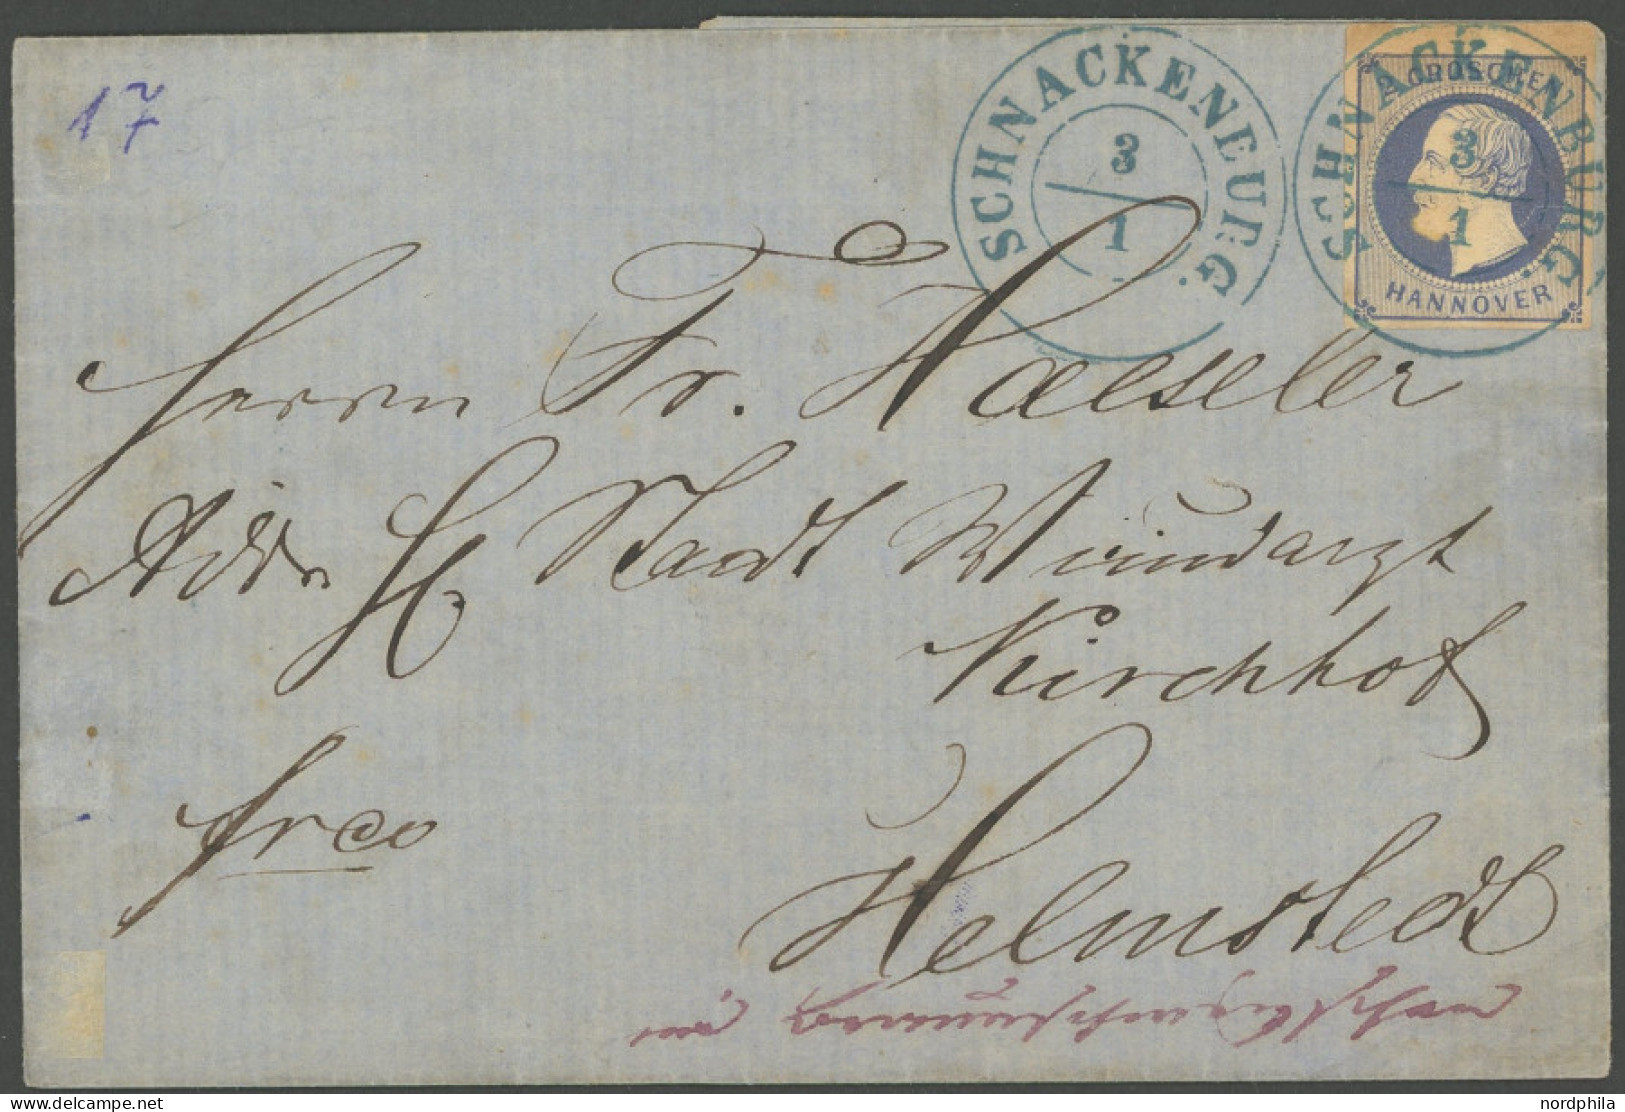 17
SCHNACKENBURG.
3
1
SCHNACKENBURG.
3
1
2 GROSCHEN
HANNOVER
Herrn Fr. Haeseler
Addr. H. Stadt Wundarzt
Kirchhof
frco
Helmstedt
www.delcampe.net
nordphila